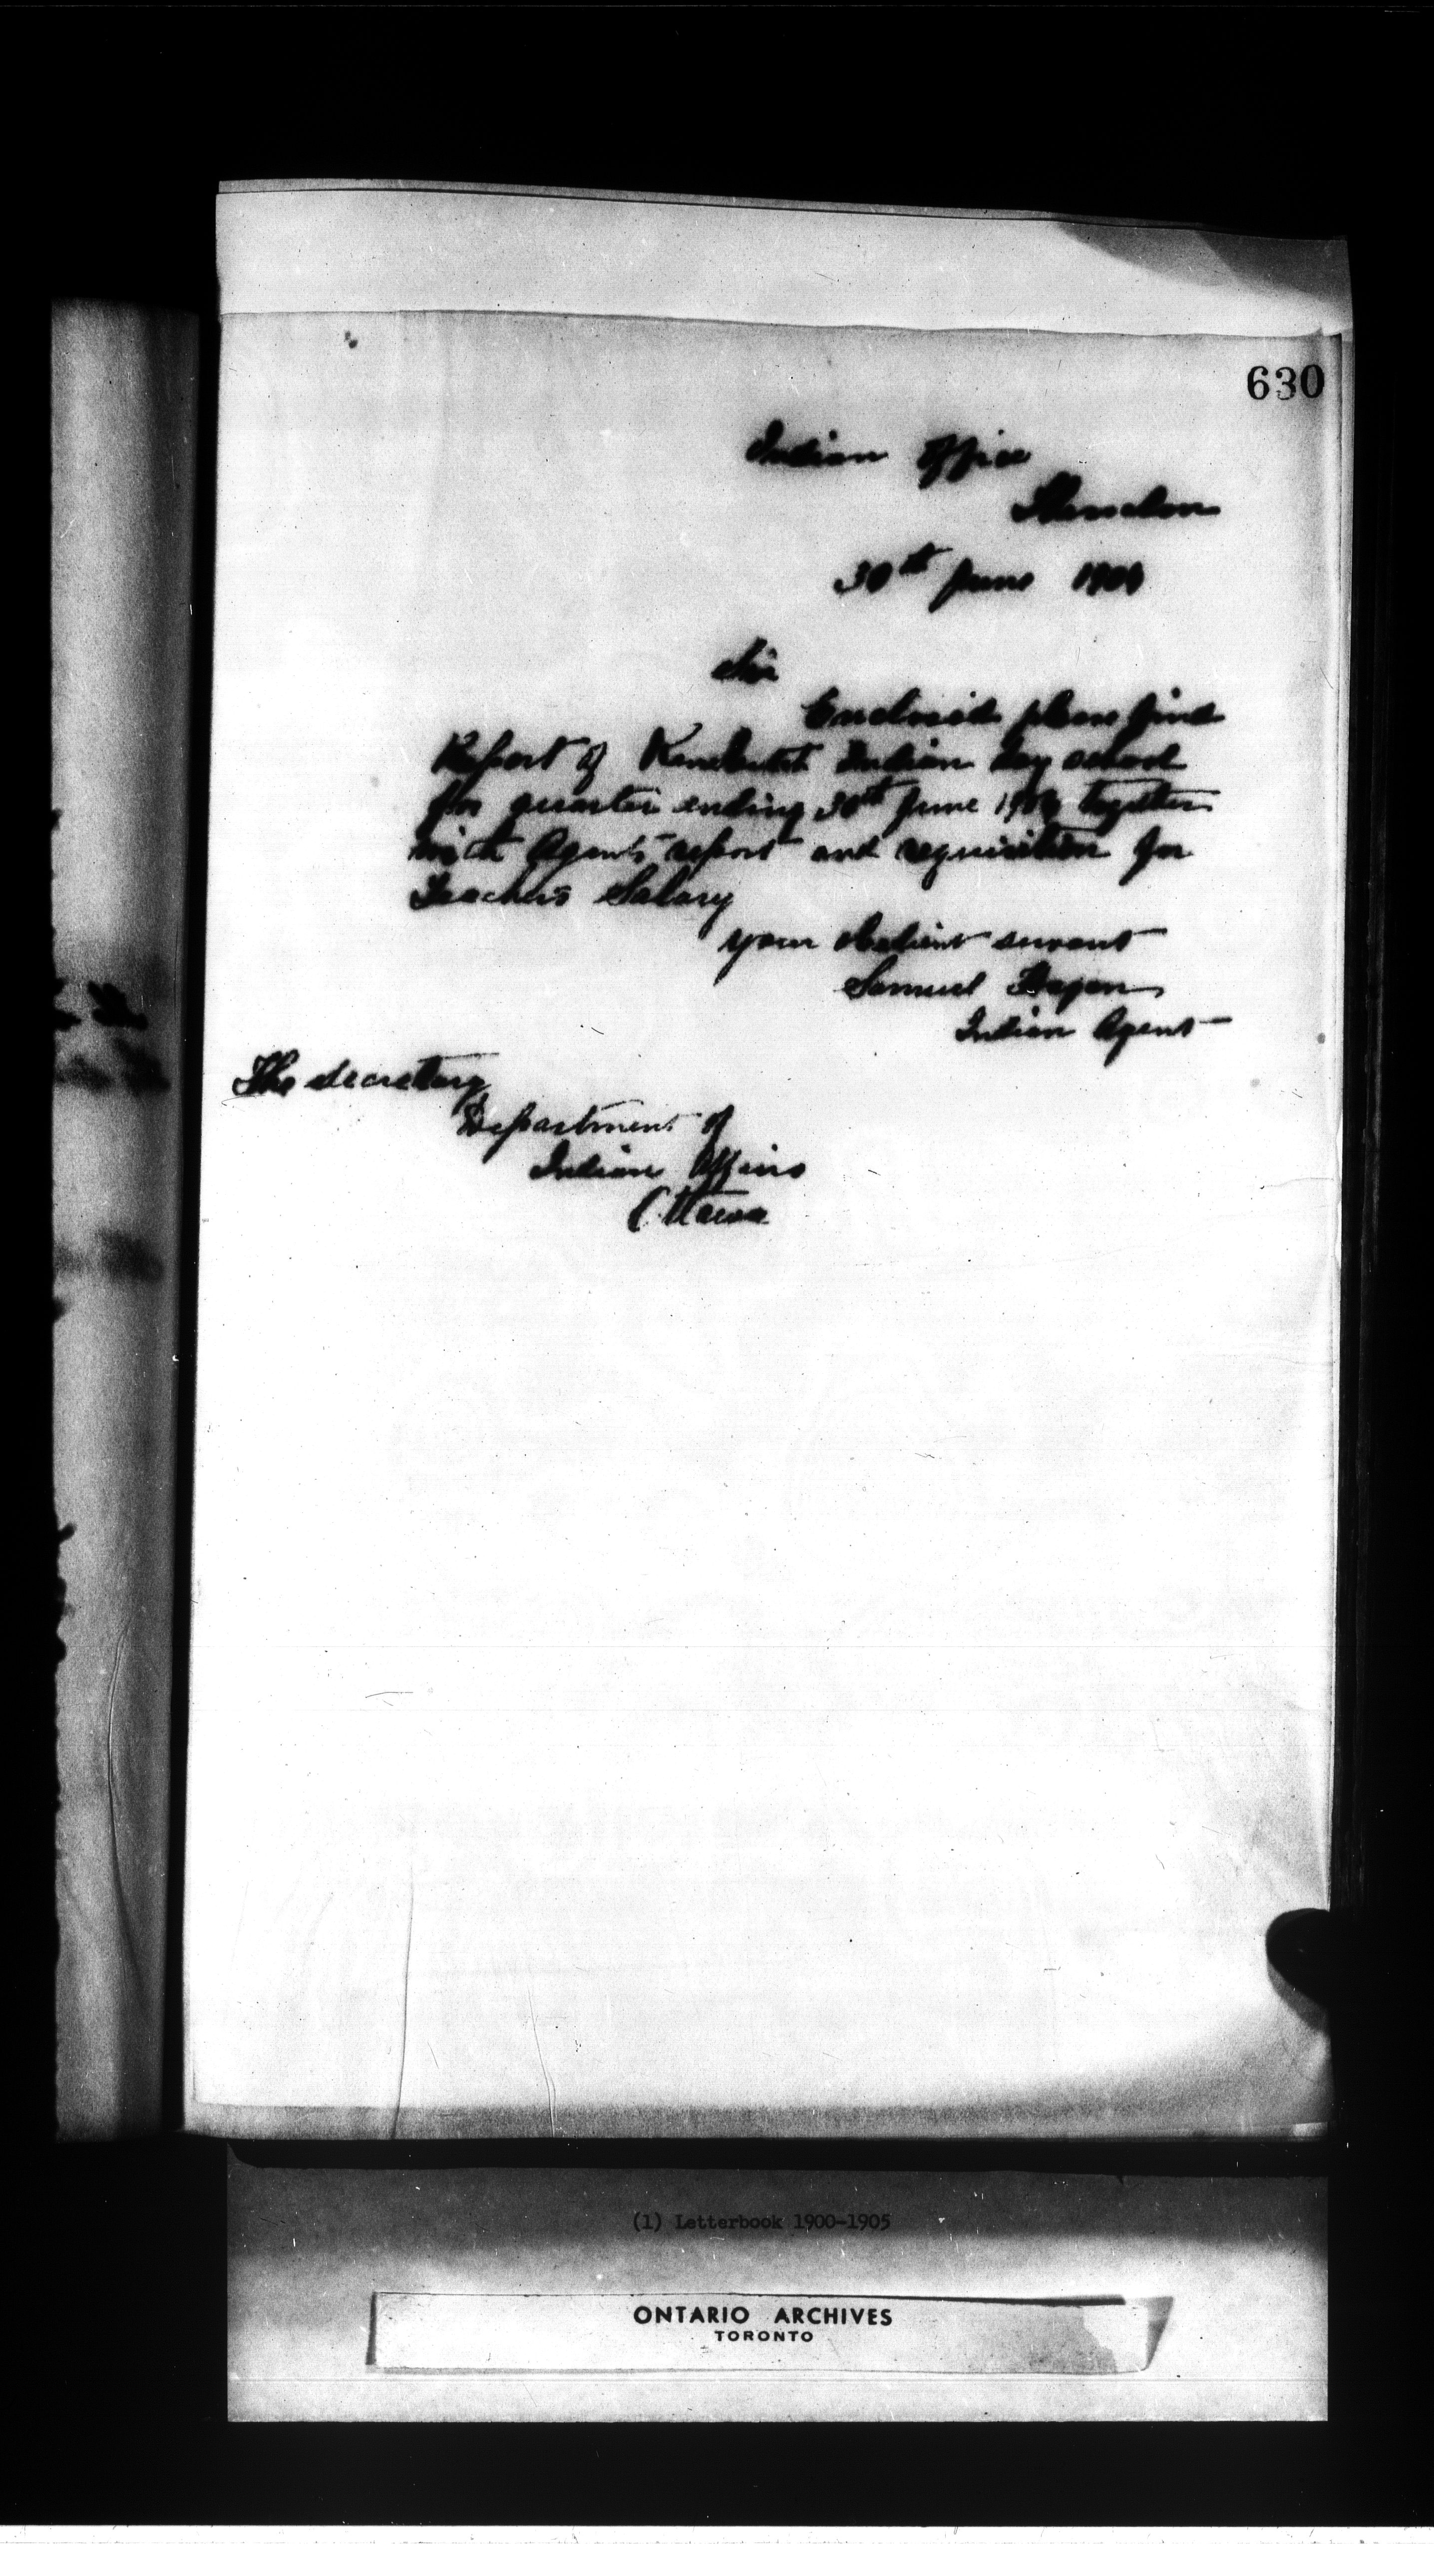 630
Indian Office
Thessalon
30th June 1904
Sir
Enclosed please find
Report of Indian Day school
for quarter ending 30th June 1904 together
with Agents report and requisition for
Teachers Salary
your obedient servant
Samuel Hagan
Indian Agent
The Secretary
Department of
Indian Affairs
Ottawa
(1) Letterbook 1900-1905
ONTARIO ARCHIVES
TORONTO